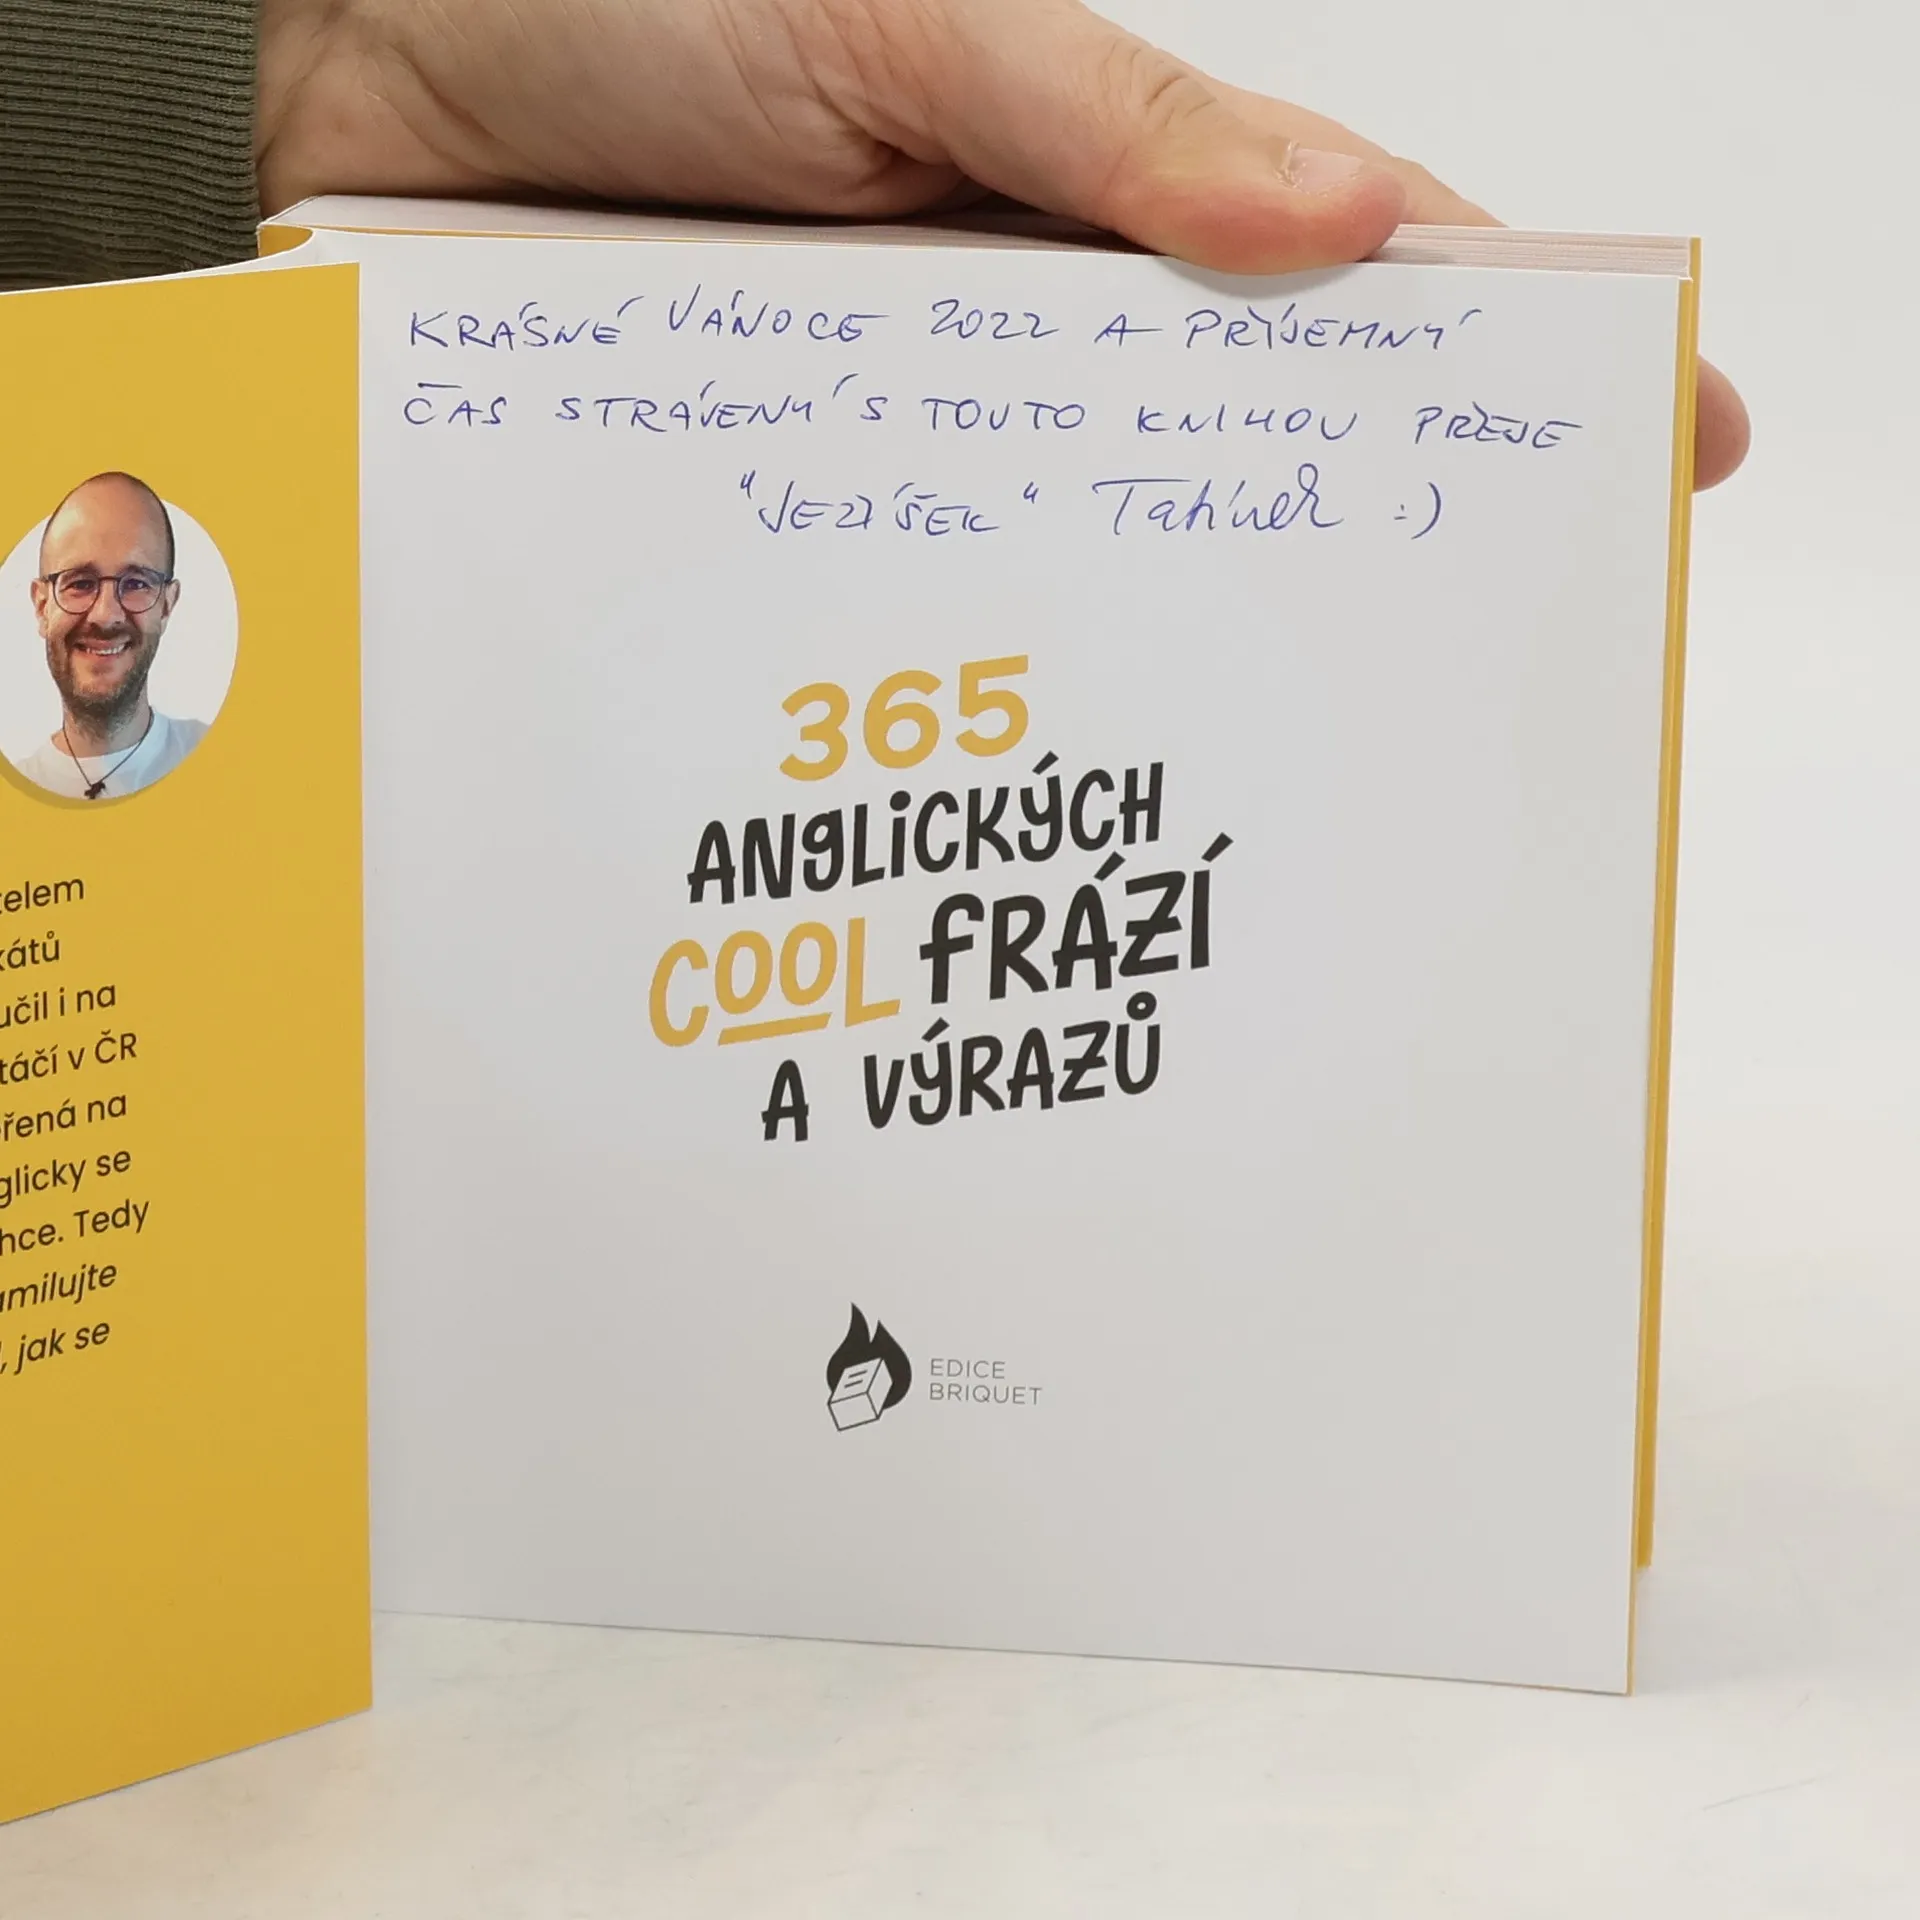 KRÁSNÉ VÁNOCE 2022 A PŘÍJEMNÝ
ČAS STRÁVENÝ S TOUTO KNIHOU PŘEJE
"JEŽÍŠEK" Tatínek :)
365
ANGLICKÝCH
COOL FRÁZÍ
A VÝRAZŮ
EDICE
BRIQUET
telem
kátů
učil i na
táčí v ČR
ěřená na
glicky se
hce. Tedy
amilujte
, jak se